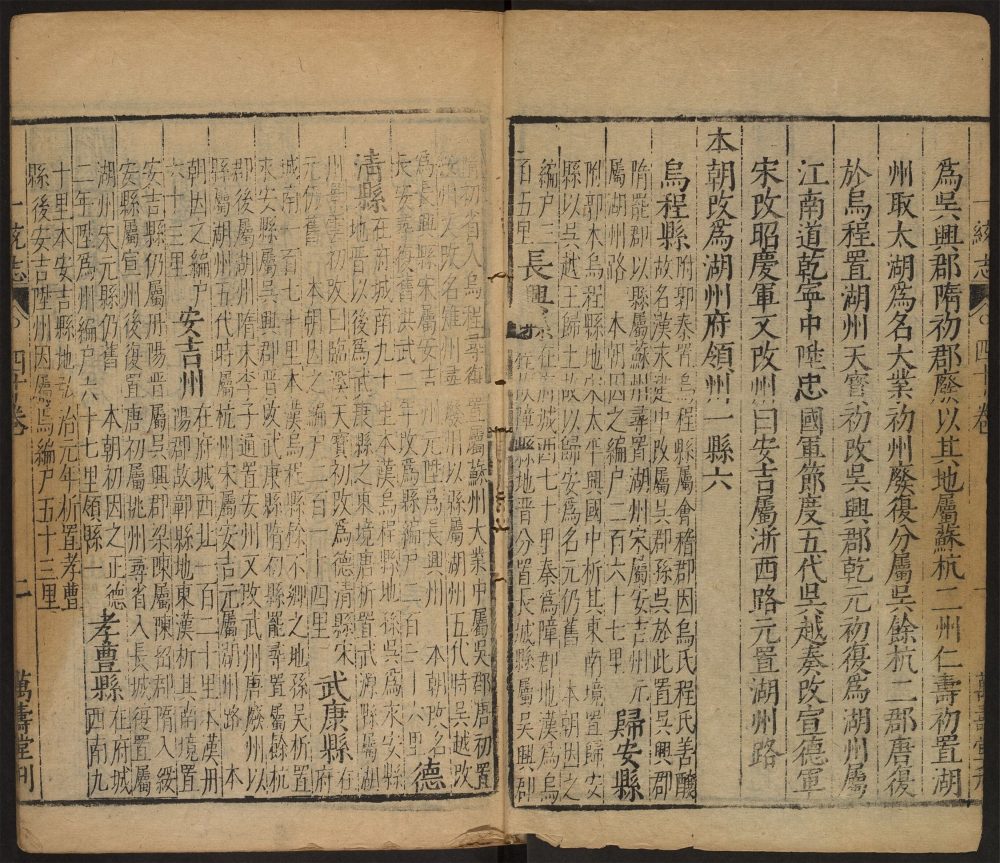 一統志 四十卷 一 萬壽堂刊
爲吳興郡隋初郡廢以其地屬蘇杭二州仁壽初置湖
州取太湖爲名大業初州廢復分屬吳餘杭二郡唐復
於烏程置湖州天寶初改吳興郡乾元初復爲湖州屬
江南道乾寧中陞忠國軍節度五代吳越奏改宣德軍
宋改昭慶軍又改州曰安吉屬浙西路元置湖州路
本朝改爲湖州府領州一縣六
烏程縣 附郭秦置烏程縣屬會稽郡因烏氏程氏善釀
故名漢永建中改屬吳郡孫吳於此置吳興郡
隋罷郡以縣屬蘇州尋置湖州宋屬安吉州元
屬湖州路 本朝因之編户二百六十七里 歸安縣
附郭本烏程縣地宋太平興國中析其東南境置歸安
縣以吳越王歸土故以歸安爲名元仍舊 本朝因之
編户三
百五里 長興縣 在府城西七十里秦爲鄣郡地漢爲烏
程故障縣地晉分置長城縣屬吳興郡
隋初省入烏程尋復置屬蘇州大業中屬吳郡唐初置
州又改名雉州尋廢州以縣屬湖州五代時吳越改
爲長興縣宋屬安吉州元陞爲長興州 本朝改名
長安尋復舊洪武二年改爲縣編户三百二十六里 德
清縣 在府城南九十里本漢烏程縣地後吳爲永安縣
地晉以後爲武康縣之東境唐析置武源縣屬湖
州景雲初改曰臨溪天寶初改爲德清縣宋
元仍舊 本朝因之編户二百一十四里 武康縣 在府
城南一百七十里本漢烏程縣餘不鄉之地孫吳析置
永安縣屬吳興郡晉改武康縣隋初縣罷尋置屬餘杭
郡後屬湖州隋末李子通置安州又改武州唐廢州以
縣屬湖州五代時屬杭州宋屬安吉元屬湖州路 本
朝因之編户
六十三里 安吉州 在府城西北一百二十里本漢丹
陽郡故鄣縣地東漢析其南境置
安吉縣仍屬丹陽晉屬吳興郡梁陳屬陳留郡隋入綏
安縣屬宣州後復置唐初屬桃州尋省入長城復置屬
湖州宋元仍舊 本朝初因之正德
二年陞爲州編户六十七里領縣一 孝豐縣 在府城
西南九
十里本安吉縣地弘治元年析置孝豐
縣後安吉陞州因屬焉編户五十三里
一統志 四十卷 二 萬壽堂刊